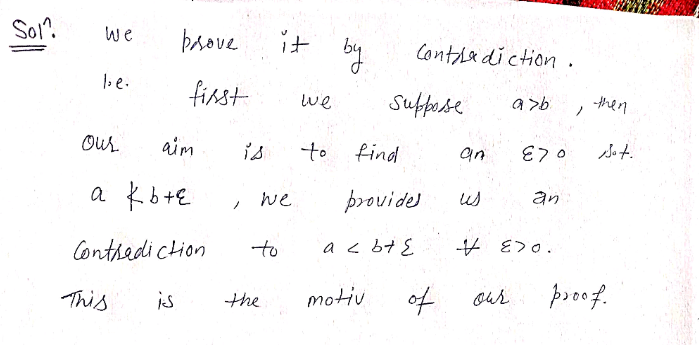 Solⁿ. we prove it by Contradiction.
i.e. first we suppose a>b, then
our aim is to find an ε>0 s.t.
a ≮ b+ε, we provides us an
Contradiction to a < b+ε ∀ ε>0.
This is the motiv of our proof.